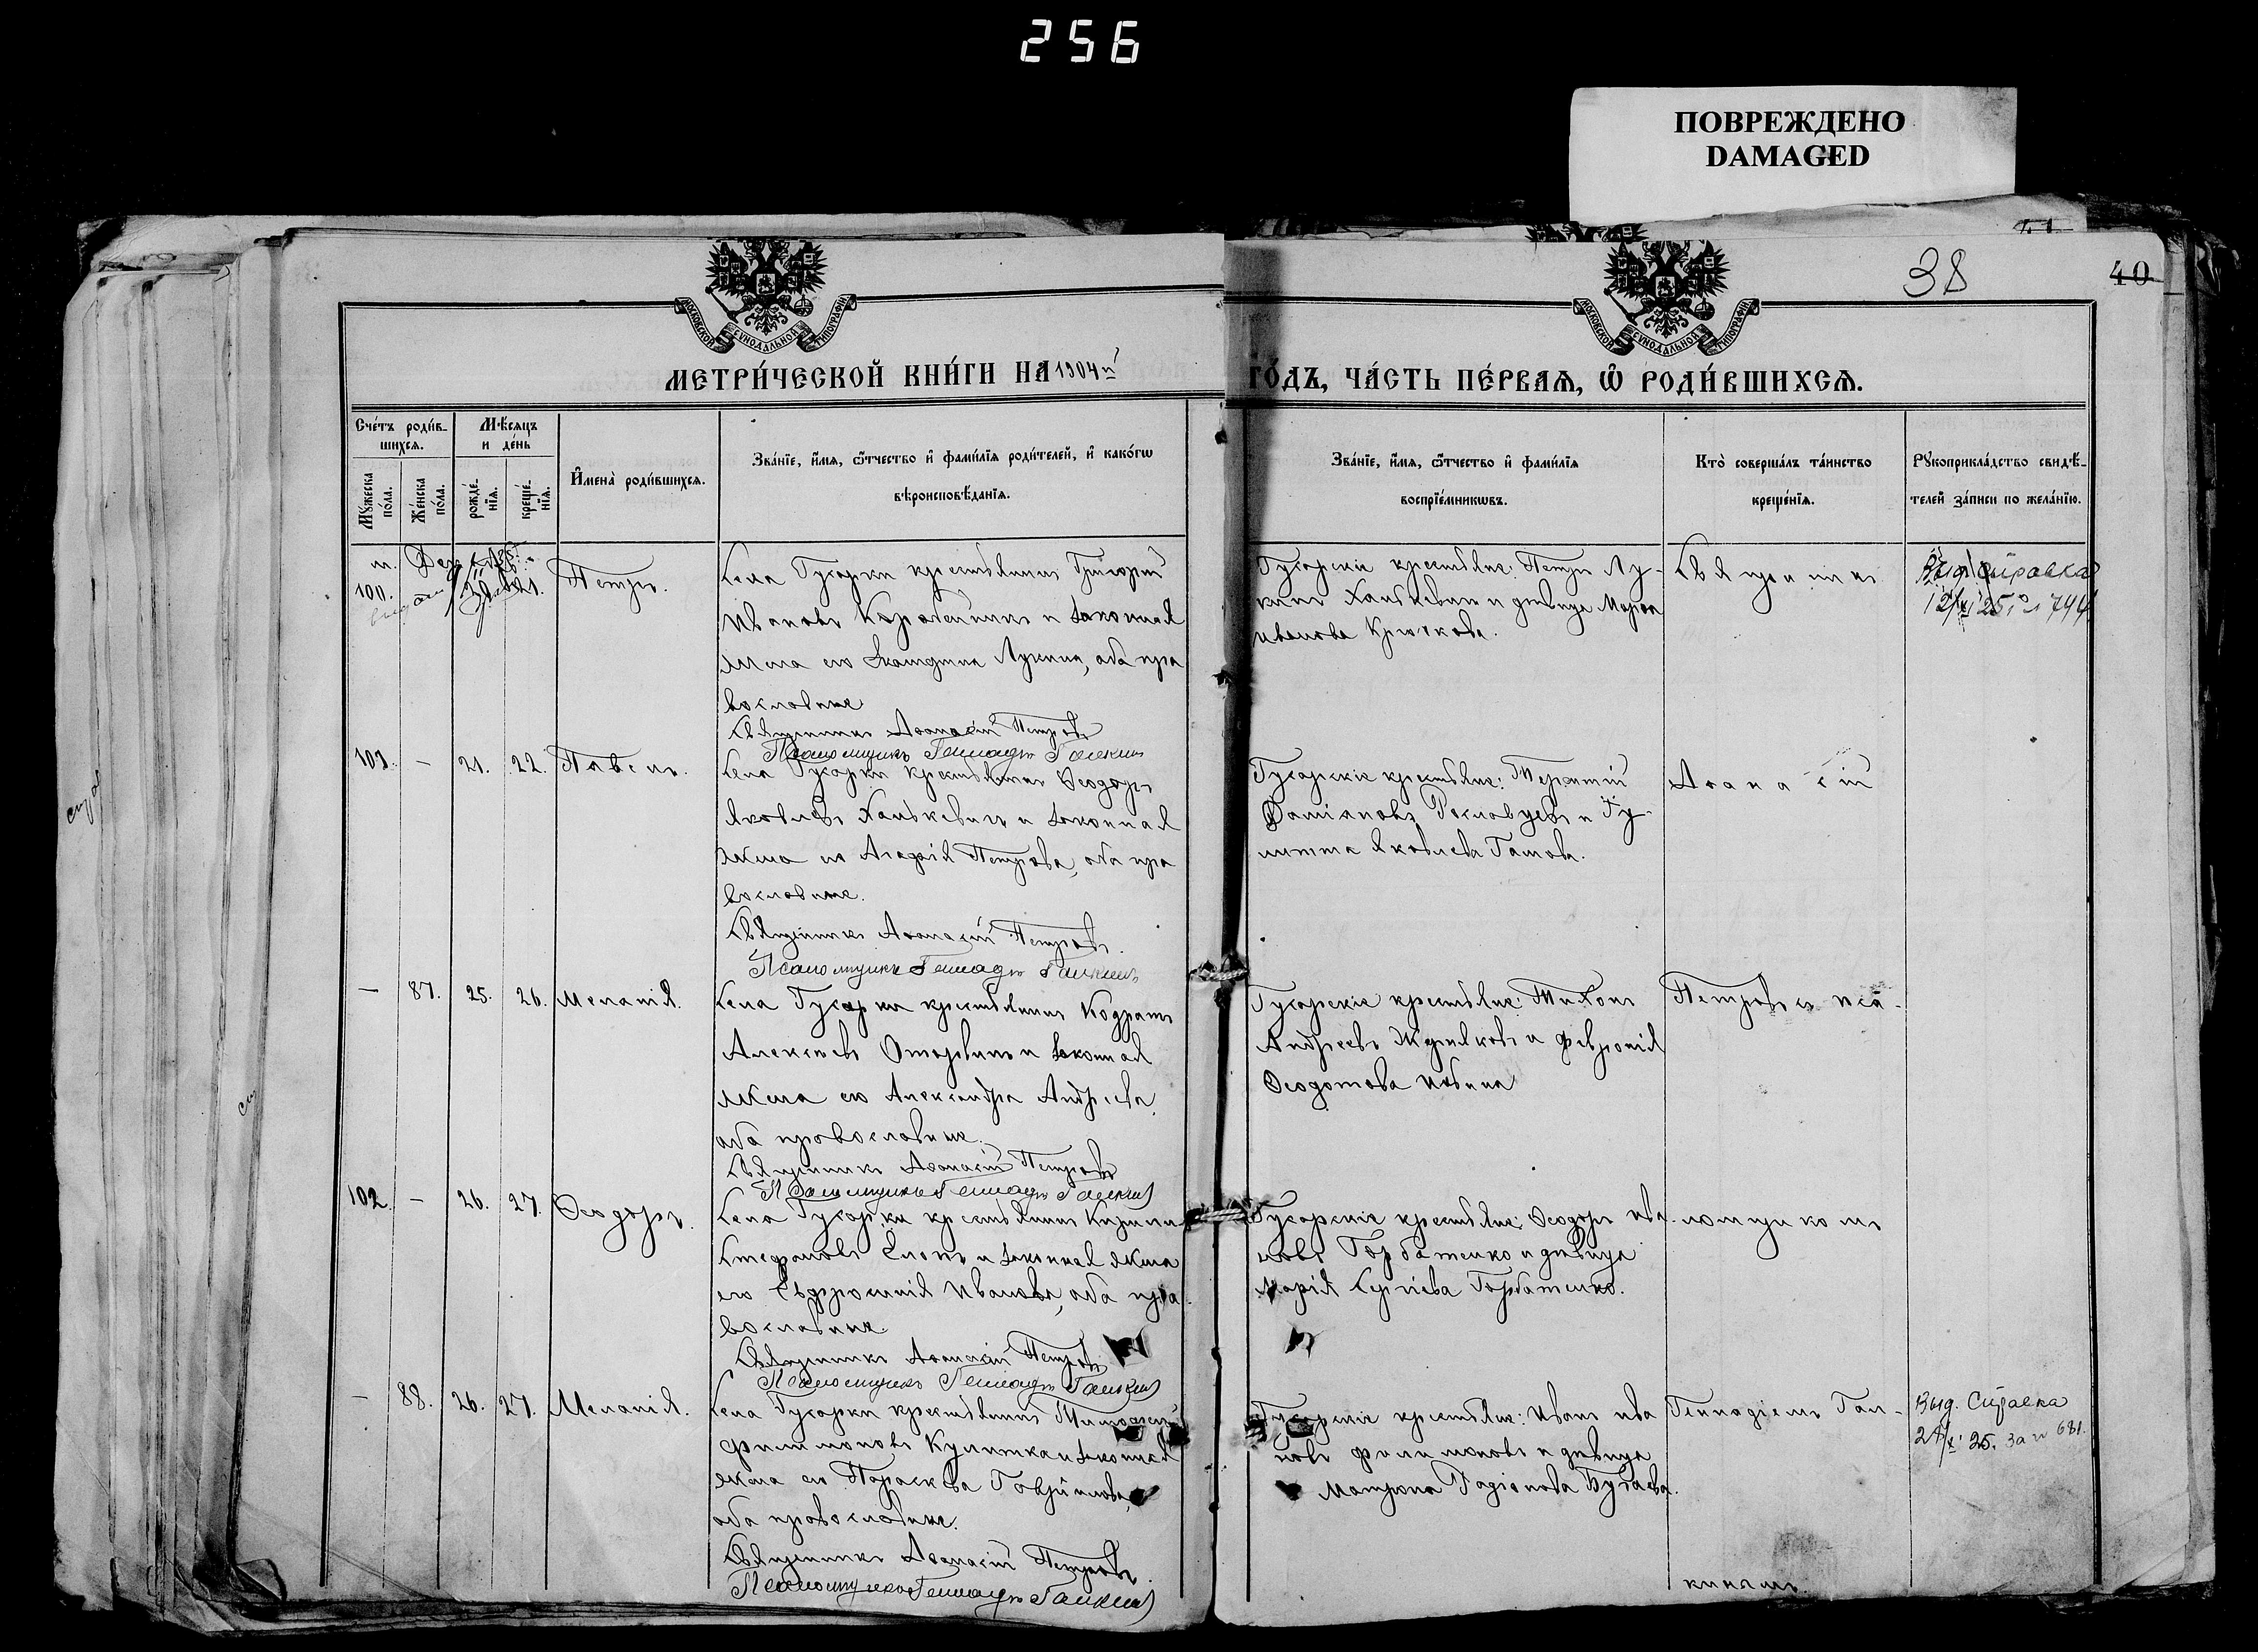 256
ПОВРЕЖДЕНО
DAMAGED
38
40
МОСКОВСКОЙ СѴНОДАЛЬНОЙ ТИПОГРАФІИ
МОСКОВСКОЙ СѴНОДАЛЬНОЙ ТИПОГРАФІИ
МЕТРИ́ЧЕСКОЙ КНИ́ГИ НА 1904 й
ГО́ДЪ, ЧА́СТЬ ПЕ́РВАЯ, Ѡ҆ РОДИ́ВШИХСЯ.
Сче́тъ роди́в-
шихся.
Мꙋ́жеска по́ла.
Же́нска по́ла.
Мѣ́сяцъ
и де́нь
рожде́-
нїя.
креще́-
нїя.
И҆мена̀ роди́вшихся.
Зва́нїе, и҆́мя, ѻ҆́тчество и҆ фами́лїя роди́телей, и҆ како́гѡ
вѣроисповѣ́данїя.
Зва́нїе, и҆́мя, ѻ҆́тчество и҆ фами́лїя
воспрїе́мникѡвъ.
Кто̀ соверша́лъ та́инство
креще́нїя.
Рꙋкоприкла́дство свидѣ́-
телей за́писи по жела́нїю.
м.
100.
21.
Петръ.
Села Гусарки крестьянинъ Григорій
Ивановъ Коробейникъ и законная
жена его Екатерина Лукина, оба пра
вославные
Священникъ Аѳанасій Петровъ
Псаломщикъ Геннадій Галкинъ
Гусарскіе крестьяне: Петръ Лу-
кинъ Ханкевичъ и дѣвица Марѳа
Иванова Крючкова.
Священникъ
Выд. справка
12/XI 25 г. 744
101. — 21. 22. Павелъ.
Села Гусарки крестьянинъ Ѳеодоръ
Яковлевъ Ханкевичъ и законная
жена его Агафія Петрова, оба пра
вославные.
Священникъ Аѳанасій Петровъ.
Псаломщикъ Геннадій Галкинъ
Гусарскіе крестьяне: Терентій
Даміановъ и
Яковлева
Аѳанасій
— 87. 25. 26. Меланія.
Села Гусарки крестьянинъ Кодратъ
Алексѣевъ и законная
жена его Александра Андреева,
оба православные.
Священникъ Аѳанасій Петровъ
Псаломщикъ Геннадій Галкинъ
Гусарскіе крестьяне: Тихонъ
Андреевъ и Февронія
Ѳеодотова
Петровъ съ пса-
102. — 26. 27. Ѳеодоръ.
Села Гусарки крестьянинъ Кириллъ
Стефановъ и законная жена
его Евфросинія Иванова, оба пра
вославные.
Священникъ Аѳанасій Петровъ
Псаломщикъ Геннадій Галкинъ
Гусарскіе крестьяне: Ѳеодоръ Ива-
новъ Горбатенко и дѣвица
Марія Сергіева Горбатенко.
ломщикомъ
— 88. 26. 27. Меланія.
Села Гусарки крестьянинъ Тимоѳей
Филимоновъ Кулишка и законная
жена его Параскева Гавриилова,
оба православные.
Священникъ Аѳанасій Петровъ.
Псаломщикъ Геннадій Галкинъ
Гусарскіе крестьяне: Иванъ Ива
новъ Филимоновъ и дѣвица
Матрона Родіонова Бугаева.
Геннадіемъ Гал-
кинымъ.
Выд. Справка
25. за № 681.